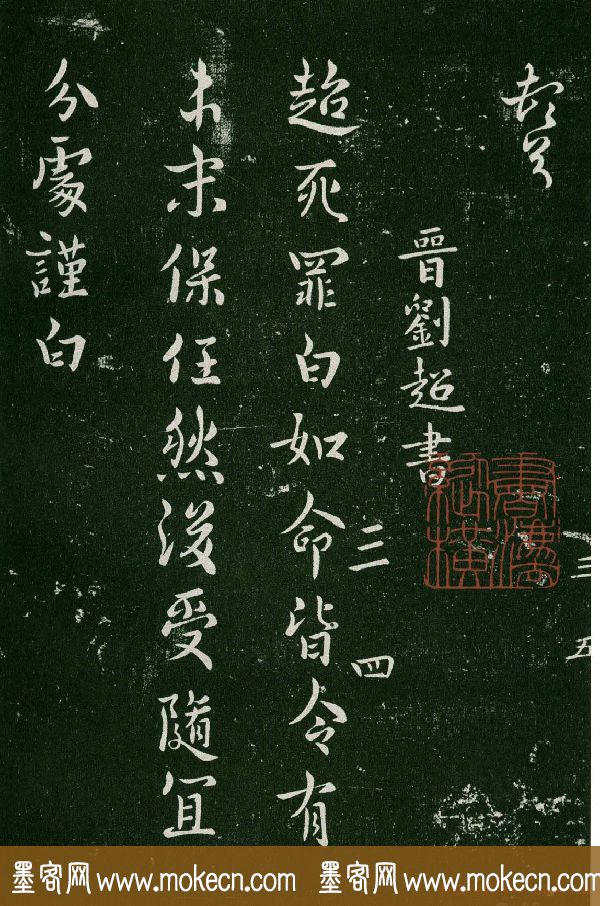 晉劉超書
三 四
超死罪白如命皆令有
本末保任然後受隨宜
分處謹白
三 五
墨客网 www.mokecn.com 墨客网 www.mokecn.com